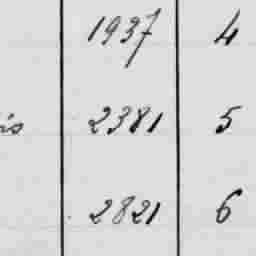 1937 4
is 2381 5
2821 6